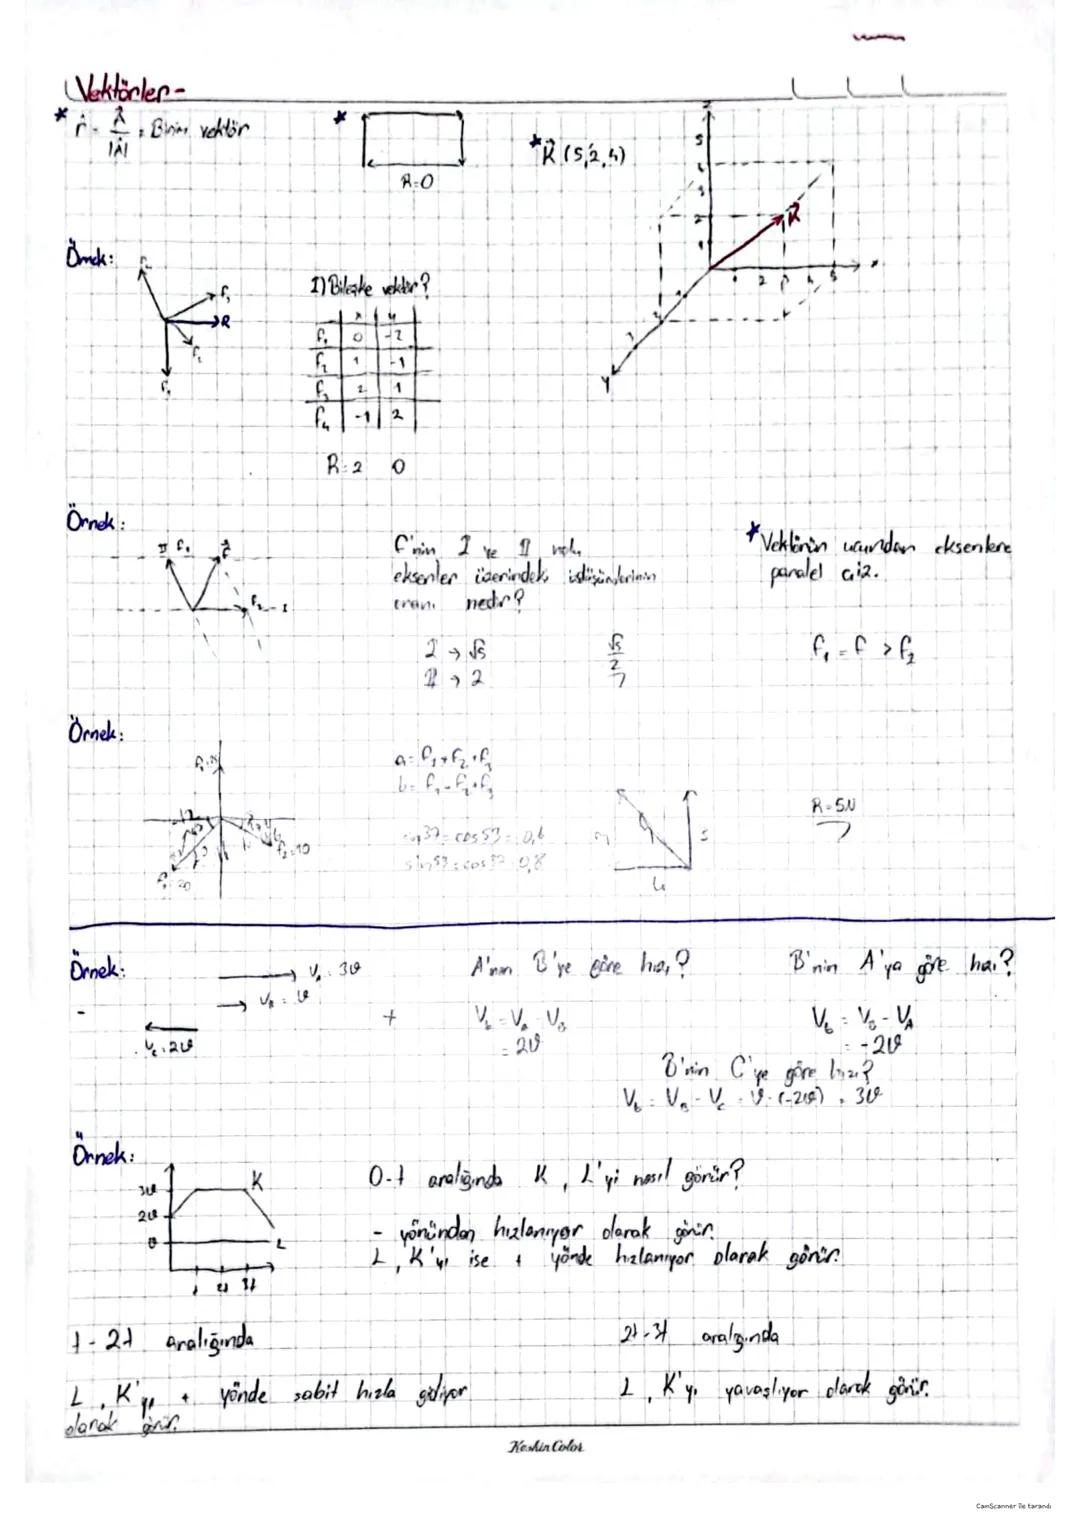 Vektörler-
* r̂ = A⃗ / |A⃗| = Birim vektör
*
R=0
* K⃗ (5,2,4)
z
5
4
3
2
1
K⃗
1 2 3 4 5 x
3
y
Örnek:
F₃
R
F₂
F₁
I) Bileşke vektör?
x y
F₁ 0 -2
F₂ 1 -1
F₃ 2 1
F₄ -1 2
R=2 0
Örnek:
II F₁ F⃗
F₂ I
F'nin I ve II nolu
eksenler üzerindeki izdüşümlerinin
oranı nedir?
I → √5
II → 2
√5/2
* Vektörün ucundan eksenlere
paralel çiz.
F₁ = F > F₂
Örnek:
F₂=10
a = F₁+F₂+F₃
b = F₁-F₂+F₃
sin37=cos53=0,6
sin53=cos37=0,8
4
R=5N
Örnek:
Vₐ = 3ϑ
V_B = ϑ
V_C = 2ϑ
- +
A'nın B'ye göre hızı?
V_b = V_a - V_B
= 2ϑ
B'nin A'ya göre hızı?
V_b = V_B - V_A
= -2ϑ
B'nin C'ye göre hızı?
V_b = V_B - V_C = ϑ-(-2ϑ) = 3ϑ
Örnek:
3ϑ
2ϑ
ϑ
K
L
t 2t 3t
0-t aralığında K, L'yi nasıl görür?
- yönünden hızlanıyor olarak görür.
L, K'yı ise + yönde hızlanıyor olarak görür.
t-2t aralığında
L, K'yı + yönde sabit hızla gidiyor
olarak görür.
2t-3t aralığında
L, K'yı yavaşlıyor olarak görür.
Keskin Color
CamScanner ile tarandı